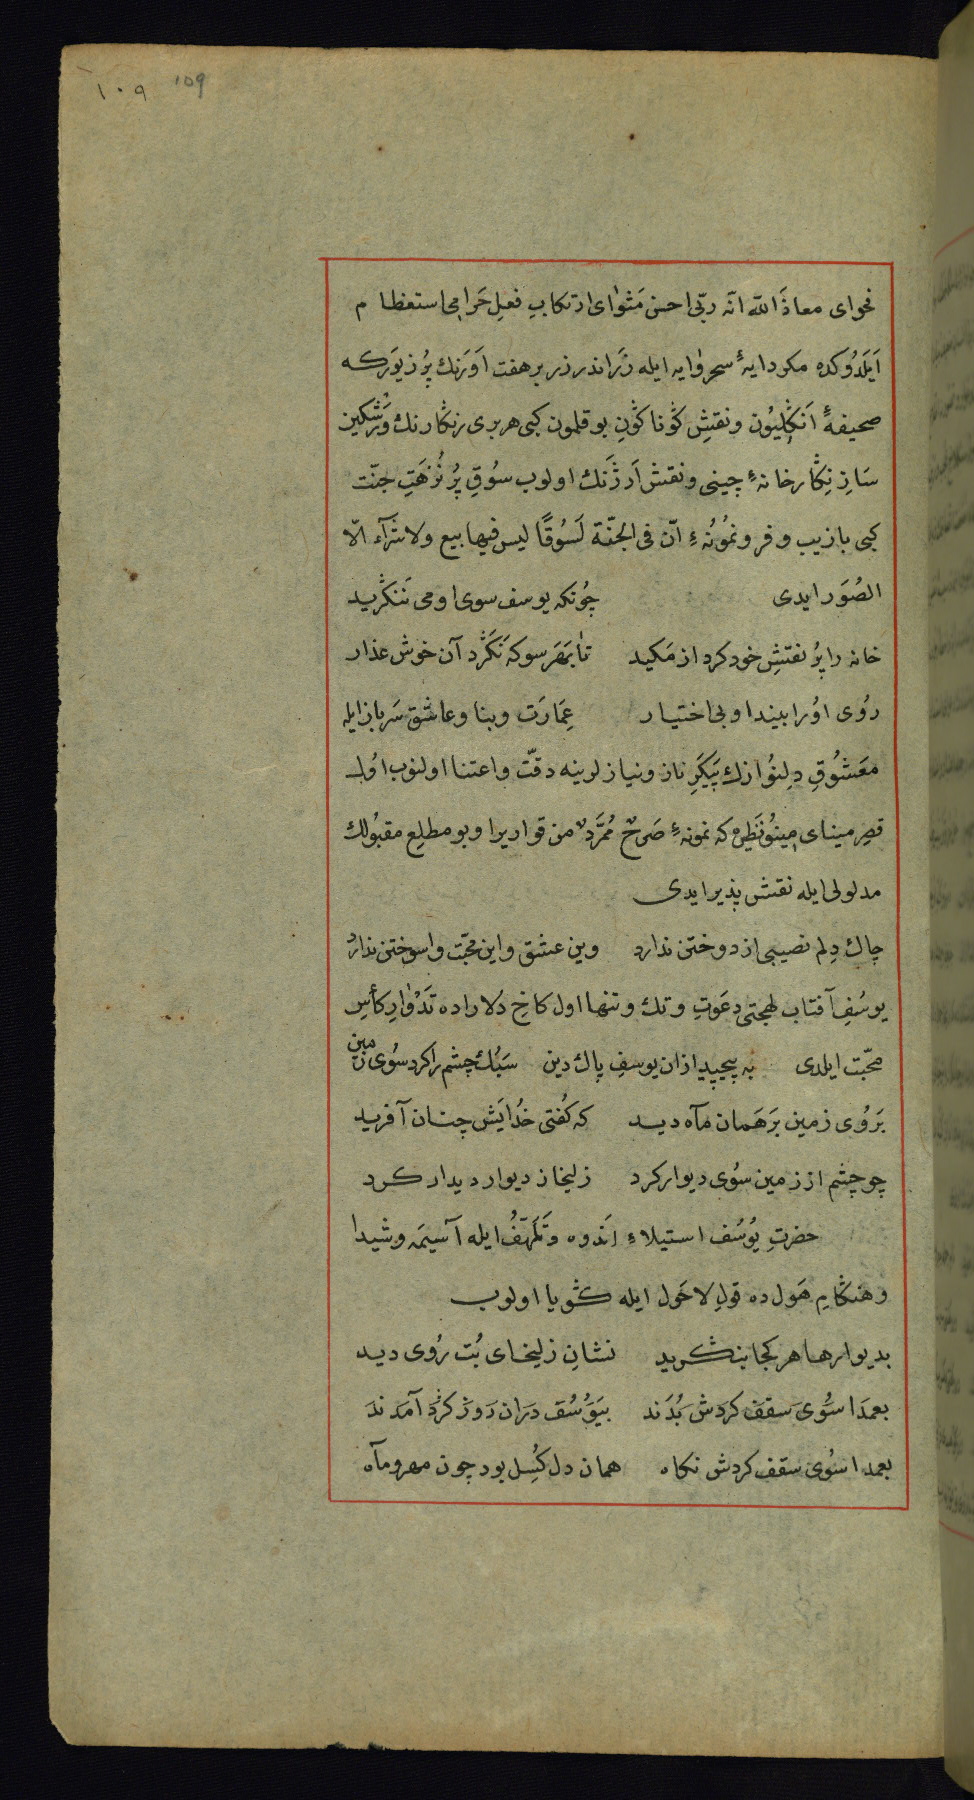 ١٠٩ 109
فحوای معاذَ اللّه انّه ربّی احسن مَثوٰای ارتکابِ فعلِ حَرامی استعظام
اَیلَدُوکده مکر دایهٔ سحر وٰایه ایله زَر اندر زر بر هفت اَوَرَنك پُر زیوَرکه
صحیفهٔ اَنکلیُون و نقشِ کوُناکوُنِ بوقلمون کبی هر بری رنکارنك و رَشکین
سَازِ نِکارخانهٔ چینی و نقش اَرژَنك اولوب سوُقِ پُر نُزهَتِ جنّت
کبی بازیب و فر و نموُنهٔ انّ فی الجنّة لَسوُقًا لیس فیها بیع ولا شرآء الّا
الصُوَر ایدی چُونکه یوسف سوی او می نَنکرید
خانه را پُر نقشِ خود کرد از مَکید تا بَهَر سو که نَکَرد آن خوش عذار
روُی اوُرا بیند او بی اختیار عِمَارَت و بنا و عاشق سَرباز ایله
معَشوُقِ دِلنوُازك پَیکَرِ ناز و نیازلرینه دقّت و اعتنا اولنوب اوُل
قصرِ مینای مینوُ نَظیر که نمونهٔ صَرحٌ مُمَرَّدٌ من قواریرا و بو مطلعِ مقبُولك
مدلولی ایله نقش پذیر ایدی
چاك دِلم نصیبی از دوختن ندارد وین عشق و این محبّت واسوختن ندارد
یوسُفِ آفتاب لهجتی دعَوتِ و تك و تنها اول کاخِ دُلاراده تَدْوٰارِ کأسِ
محبّت ایلدی به پیچید ازان یوسفِ پاك دین سَبُك چشم را کرد سُوی زمین
بَروُی زمین بَر هَمان مآه دید که کُفتی خُدایَش چنان آفرید
چو چشم از زمین سوُی دیوار کرد زلیخا ز دیوار دیدار کرد
حضرتِ یوُسُف استیلاءِ اَندوه و تَلَهّفُ ایله آسیمَه و شیدا
و هنکامِ هَول ده قولِ لاحَول ایله کویا اولوب
بدیوارها هر کجا بنکرید نشانِ زلیخای بُت رُوی دید
بعمدَا سوُی سَقف کردش بُدَند بیَوُسُف دران رَوز کَرد آمَدَند
بعمدا سوُی سقف کردش نکاه همان دل کُسِل بود چون مهر و مآه